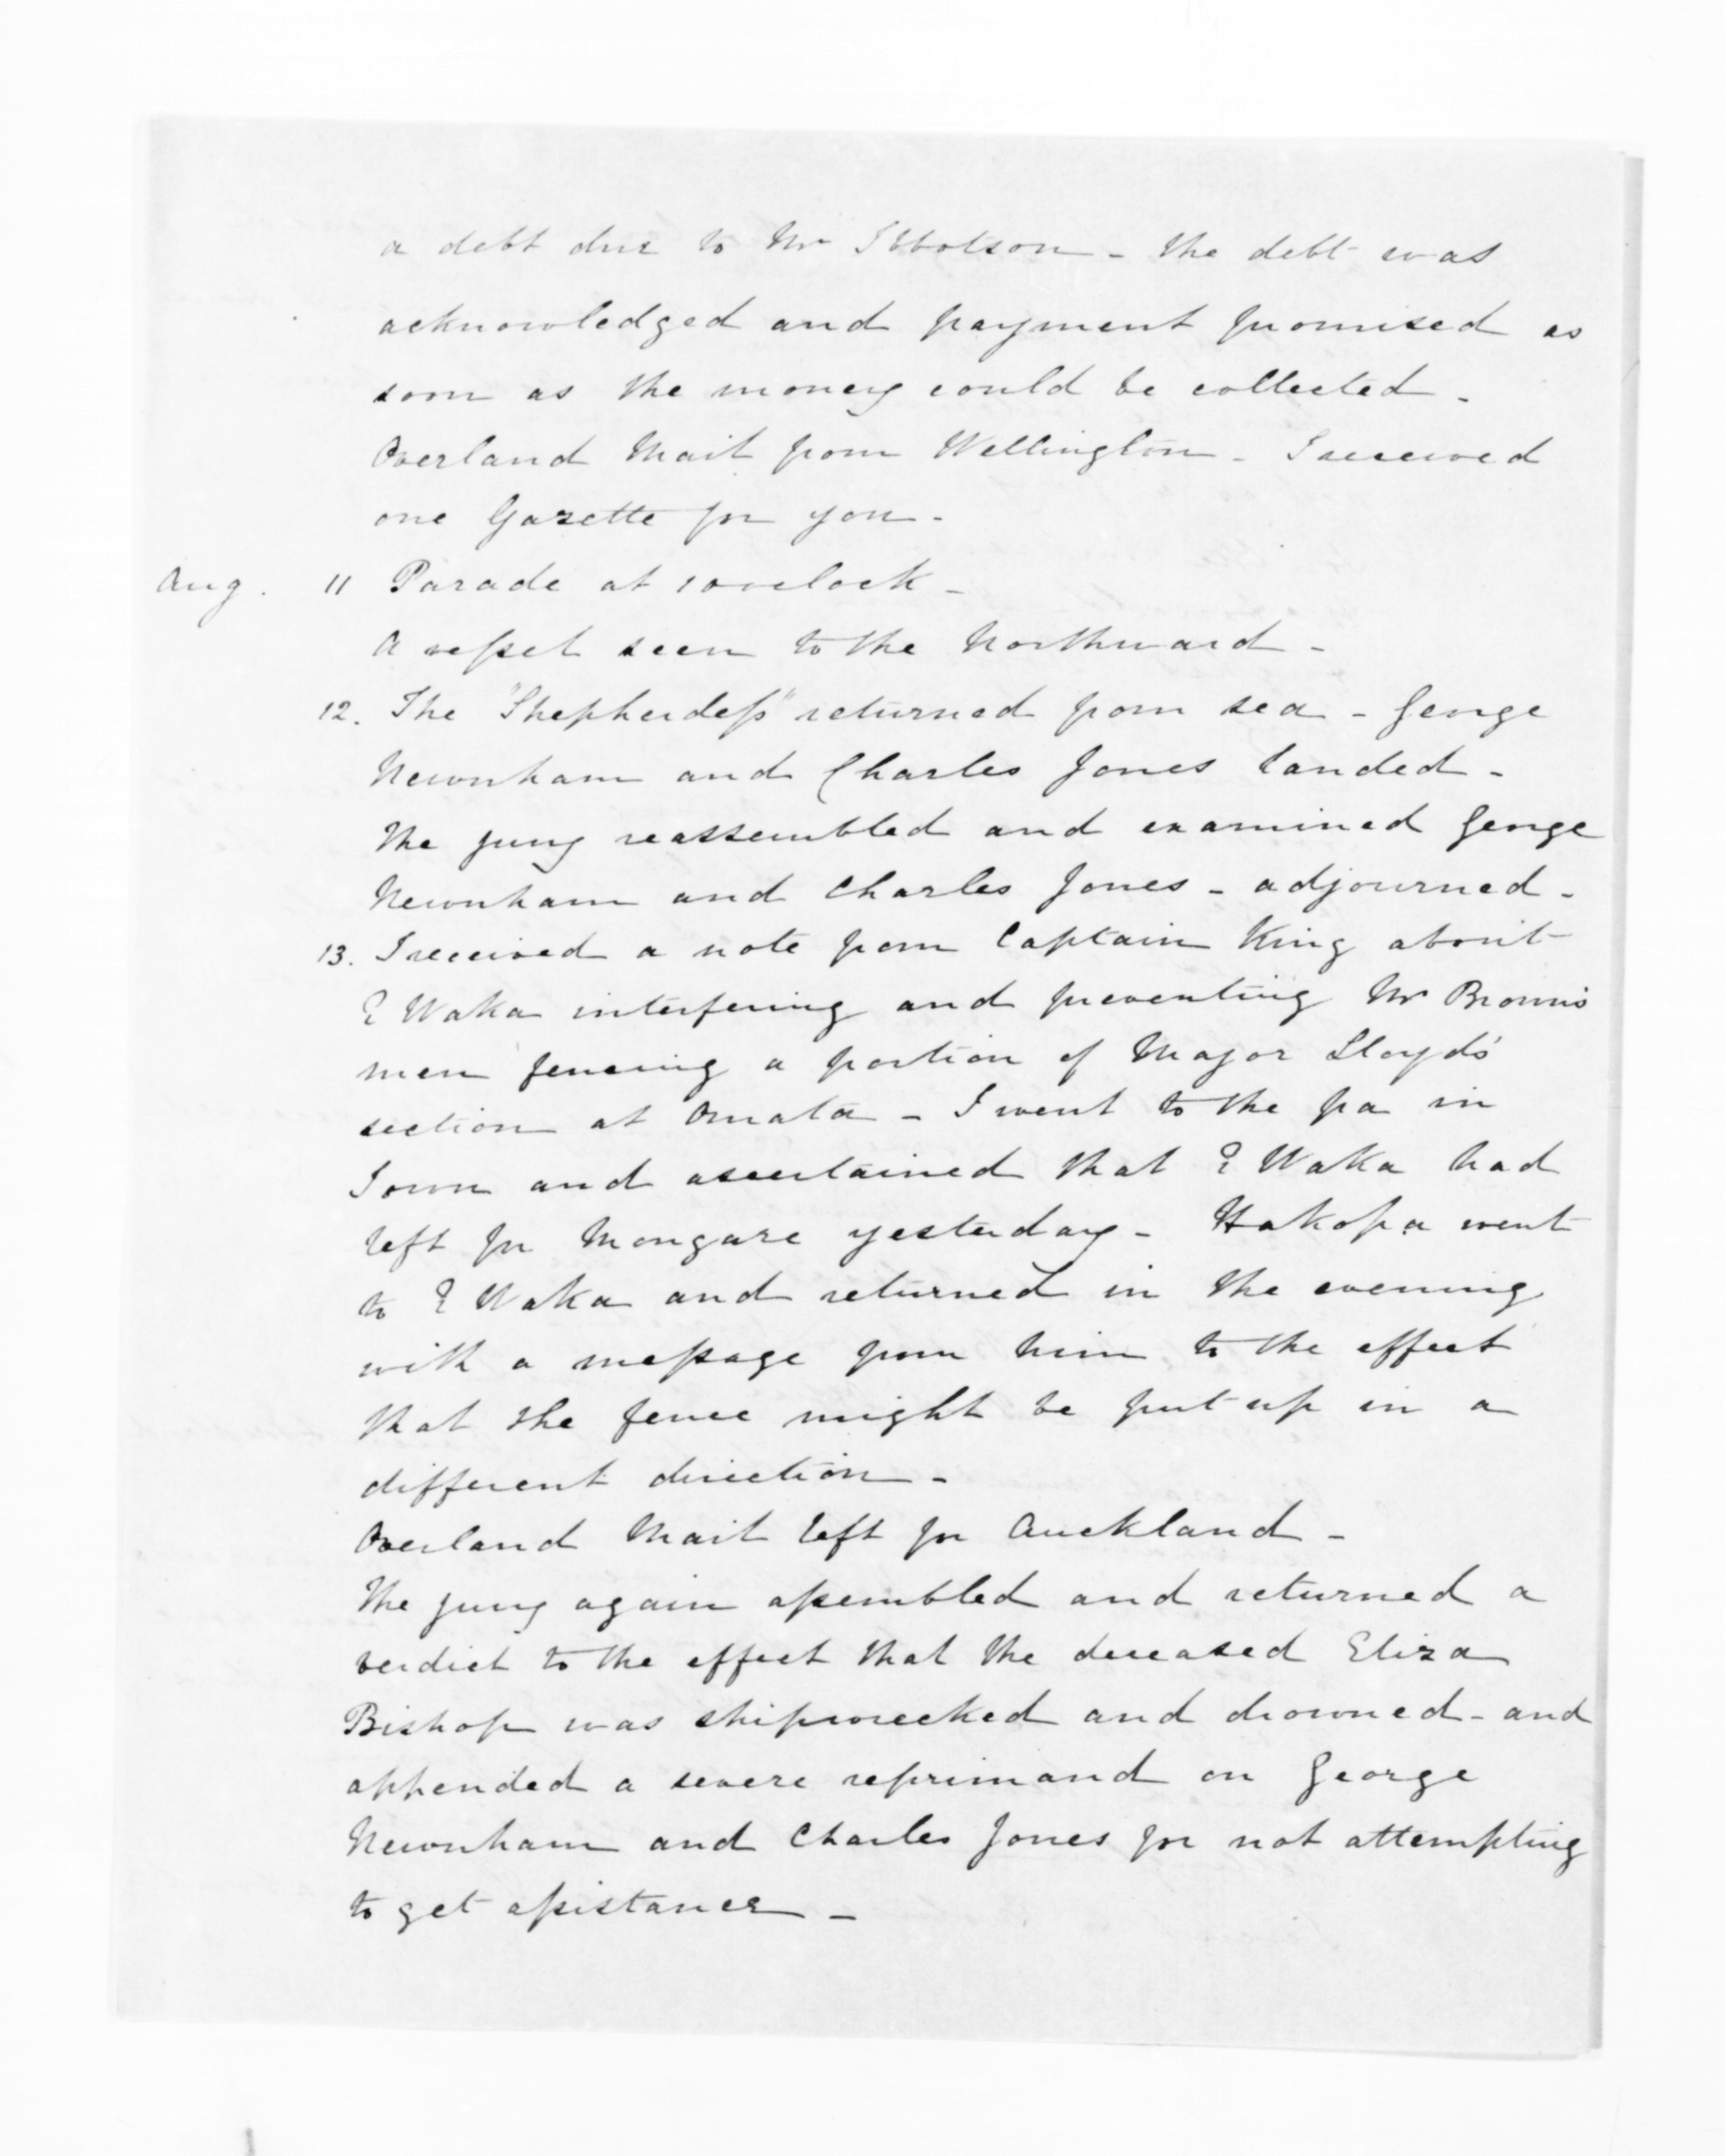 a debt due to Mr Ibbotson - the debt was
acknowledged and payment promised as
soon as the money could be collected -
Overland Mail from Wellington - I received
one Gazette for you -
Aug. 11 Parade at 10 oclock -
A vessel seen to the Northward -
12. The "Shepherdess" returned from sea - George
Newnham and Charles Jones landed -
The jury reassembled and examined George
Newnham and Charles Jones - adjourned -
13. I received a note from Captain King about
E Waka interfering and preventing Mr Brown's
men fencing a portion of Major Lloyds'
section at Omata - I went to the pa in
Town and ascertained that E Waka had
left for Mongare yesterday - Hakopa went
to E Waka and returned in the evening
with a message from him to the effect
that the fence might be put up in a
different direction -
Overland Mail left for Auckland -
The jury again assembled and returned a
verdict to the effect that the deceased Eliza
Bishop was shipwrecked and drowned - and
appended a severe reprimand on George
Newnham and Charles Jones for not attempting
to get assistance -